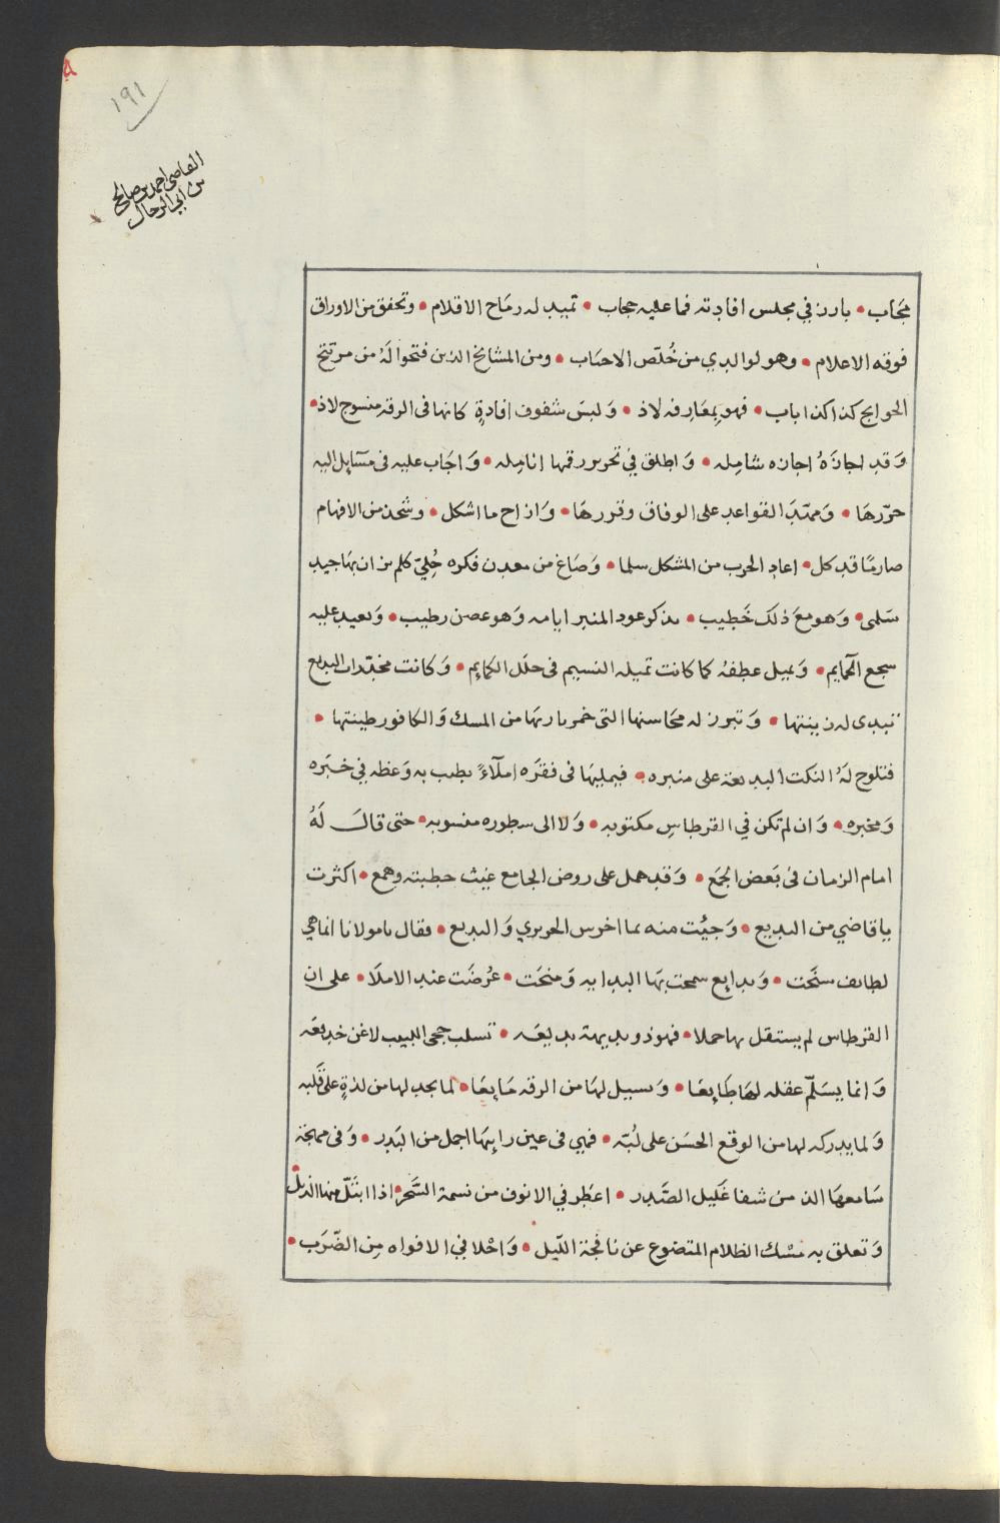 ١٩١
القاضي احمد بن صالح
بن ابي الرجال
مجَاب • بارز في مجلس افادته فما عليه حجاب • تميد له رمَاح الاقلام • وتخفق من الاوراق
فوقه الاعلام • وهو لوالدي من خُلّص الاحبَاب • ومن المشائخ الذين فتحوا لهُ من مرتتج
الحوايج كذا كذا باب • فهو بمعَارفه لاذ • وَلبسَ شفوف افادةٍ كانها في الرقة منسوج لاذ •
وَقد اجازَهُ اجازه شامِله • وَاطلق في تحرير رقمها انامِله • وَاجَاب عليه في مسَآيل اليه
حرّرهَا • وَممّهدَ القواعد على الوفاق وقررهَا • وَازاح ما اشكل • وشحذ من الافهام
صارمًا قد كل • اعاد الحرب من المشكل سلما • وَصَاغ من معدن فكره حُليّ كلم زان بهَا جيد
سَلمى • وَهو معَ ذلكَ خَطِيب • يذكر عود المنبر ايامه وَهو غصن رطيب • وَيعيد عليه
سجع الحمايم • وَيميل عطفهُ كما كانت تميله النسيم في حلَل الكمايم • وَكانت مخدّرات البديع
تبدى له زينتها • وَتبرز له محَاسنها التى خمر بارئها من المسك وَالكافور طينتها •
فتلوح لهُ النكت البديعة على منبره • فيمليهَا في فقرَه املآءً يطيب به وَعظه في خبَره
وَمخبره • وَان لم تكن في القرطاس مكتوبه • وَلا الى سطوره منسوبه • حتى قالَ لهُ
امام الزمان في بَعض الجمَع • وَقد همل على روض الجامع غيث خطبته وهمع • اكثرت
يا قاضي من البديع • وَجئت منه بما اخرس الحريري وَالبديع • فقال يا مولانا انما هي
لطايف سنَحت • وَبدايع سمحت بهَا البدايه وَمنحَت • عُرضَت عند الاملَا • على ان
القرطاس لم يستقل بها حملا • فهو ذو بديهة بديعَه • تسلب حجى اللبيب لا عن خديعَه
وَانما يسَلّم عقله لهَا طَايعًا • وَيسيل لهَا من الرقه مَايعًا • لما يجد لها من لذةٍ على قلبه
وَلما يدركه لها من الوقع الحسَن على لُبّه • فهي في عين رايهَا اجمل من البَدر • وَفي مهجة
سَامعهَا الذ من شفا غَليل الصَّدر • اعطر في الانوف من نسمة السَّحر • اذا ابتَلّ منها الذيل
وَتعلق به مسْك الظلام المتضوع عن نافجة اللّيل • وَاحْلا في الافواه مِن الضّرَب •